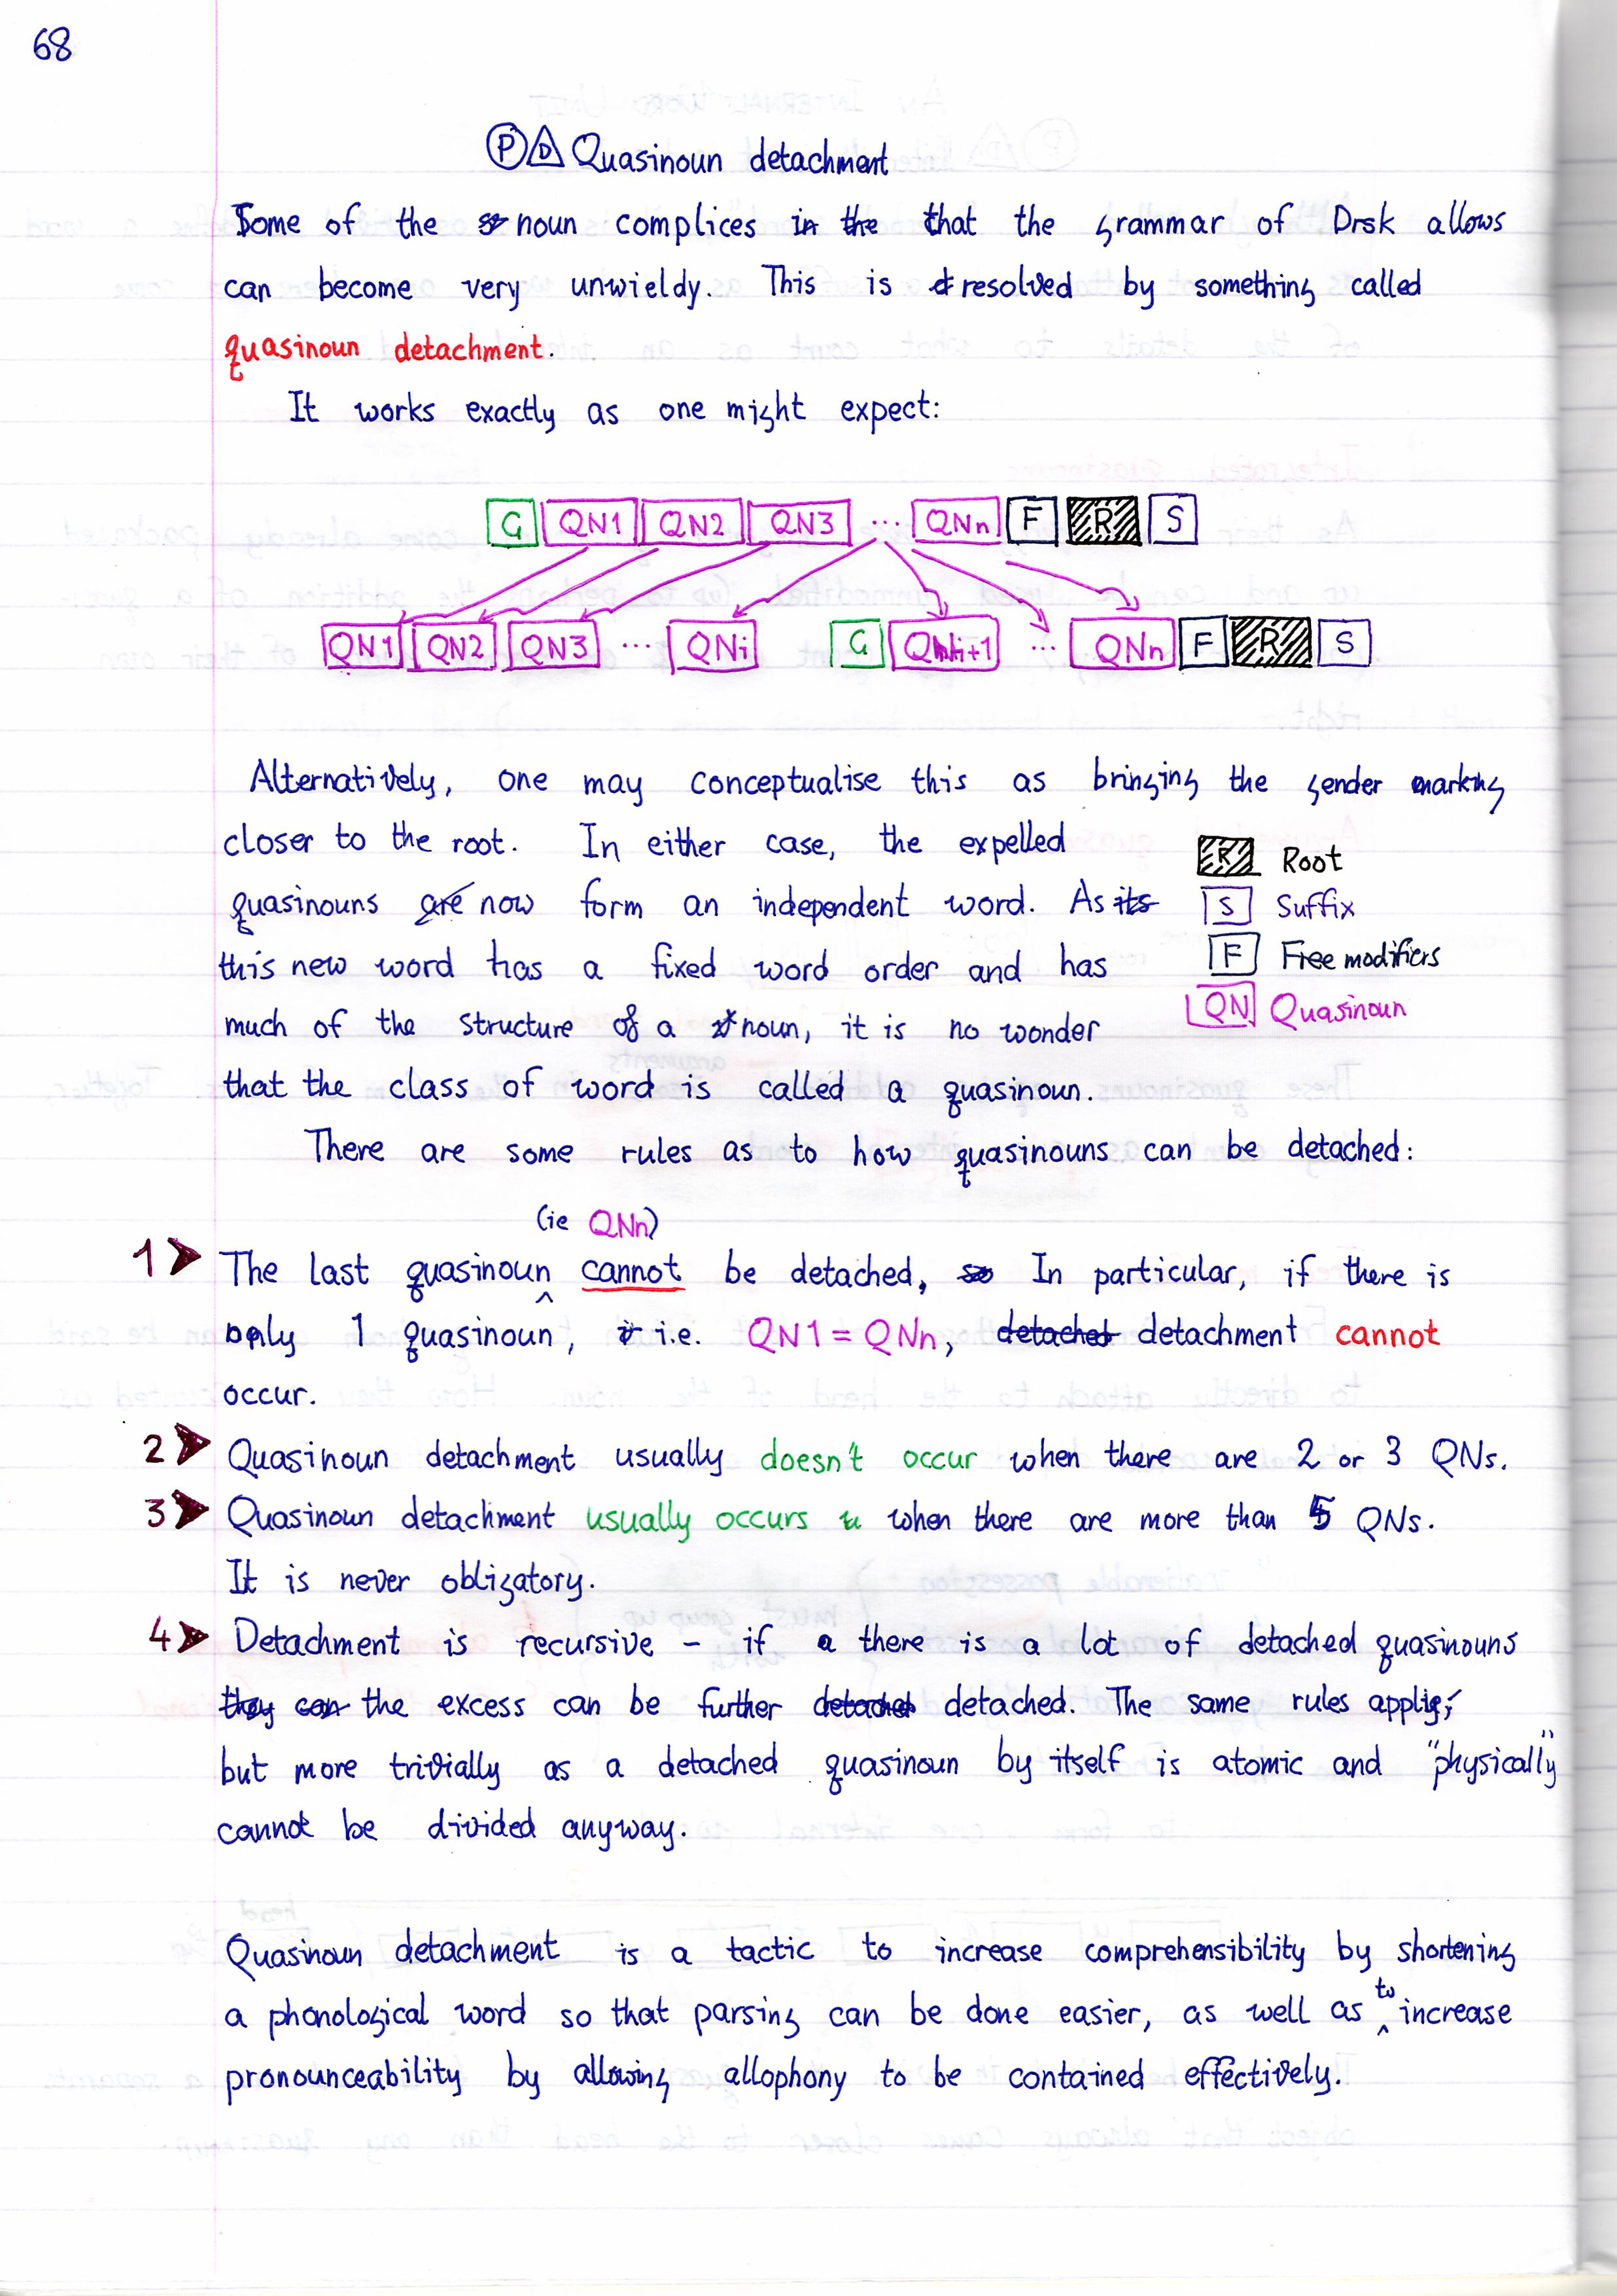 68
P D Quasinoun detachment
Some of the noun complices in the that the grammar of Drsk allows
can become very unwieldy. This is resolved by something called
quasinoun detachment.
It works exactly as one might expect:
G QN1 QN2 QN3 ... QNn F R S
QN1 QN2 QN3 ... QNi G QNi+1 ... QNn F R S
Alternatively, one may conceptualise this as bringing the gender marking
closer to the root. In either case, the expelled
R Root
quasinouns are now form an independent word. As its
S Suffix
this new word has a fixed word order and has
F Free modifiers
much of the structure of a noun, it is no wonder
QN Quasinoun
that the class of word is called a quasinoun.
There are some rules as to how quasinouns can be detached:
(ie QNn)
1 The last quasinoun ^ cannot be detached, so In particular, if there is
only 1 quasinoun, i.e. QN1 = QNn, detached detachment cannot
occur.
2 Quasinoun detachment usually doesn't occur when there are 2 or 3 QNs.
3 Quasinoun detachment usually occurs u when there are more than 5 QNs.
It is never obligatory.
4 Detachment is recursive – if a there is a lot of detached quasinouns
they can the excess can be further detached detached. The same rules apply,
but more trivially as a detached quasinoun by itself is atomic and "physically"
cannot be divided anyway.
Quasinoun detachment is a tactic to increase comprehensibility by shortening
a phonological word so that parsing can be done easier, as well as ^to increase
pronounceability by allowing allophony to be contained effectively.